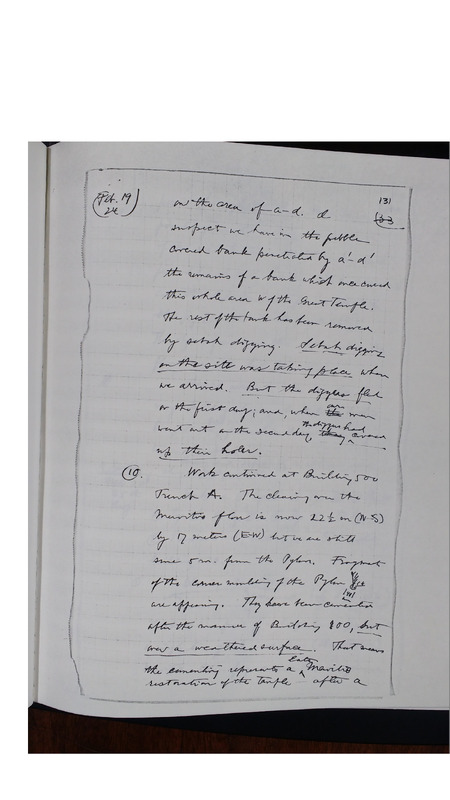 Feb. 19
24
131
on the area of a-d. I
suspect we have in the pebble
covered bank penetrated by a'-d'
the remains of a bank which once covered
this whole area W of the Great Temple.
The rest of the bank has been removed
by sebah digging. Sebah digging
on the site was taking place when
we arrived. But the diggers fled
on the first day; and, when our men
went out on the second day, the diggers had
up their holes.
(10) Work continued at Building 500
Trench A. The clearing over the
Meroitic floor is now 22½ m (N-S)
by 17 meters (EW) but we are still
some 5 m. from the Pylon. Fragments
of the corner moulding of the Pylon
are appearing. They have been cemented
after the manner of Building 800, but
over a weathered surface. That means
the cementing represents a late Meroitic
restoration of the temple after a